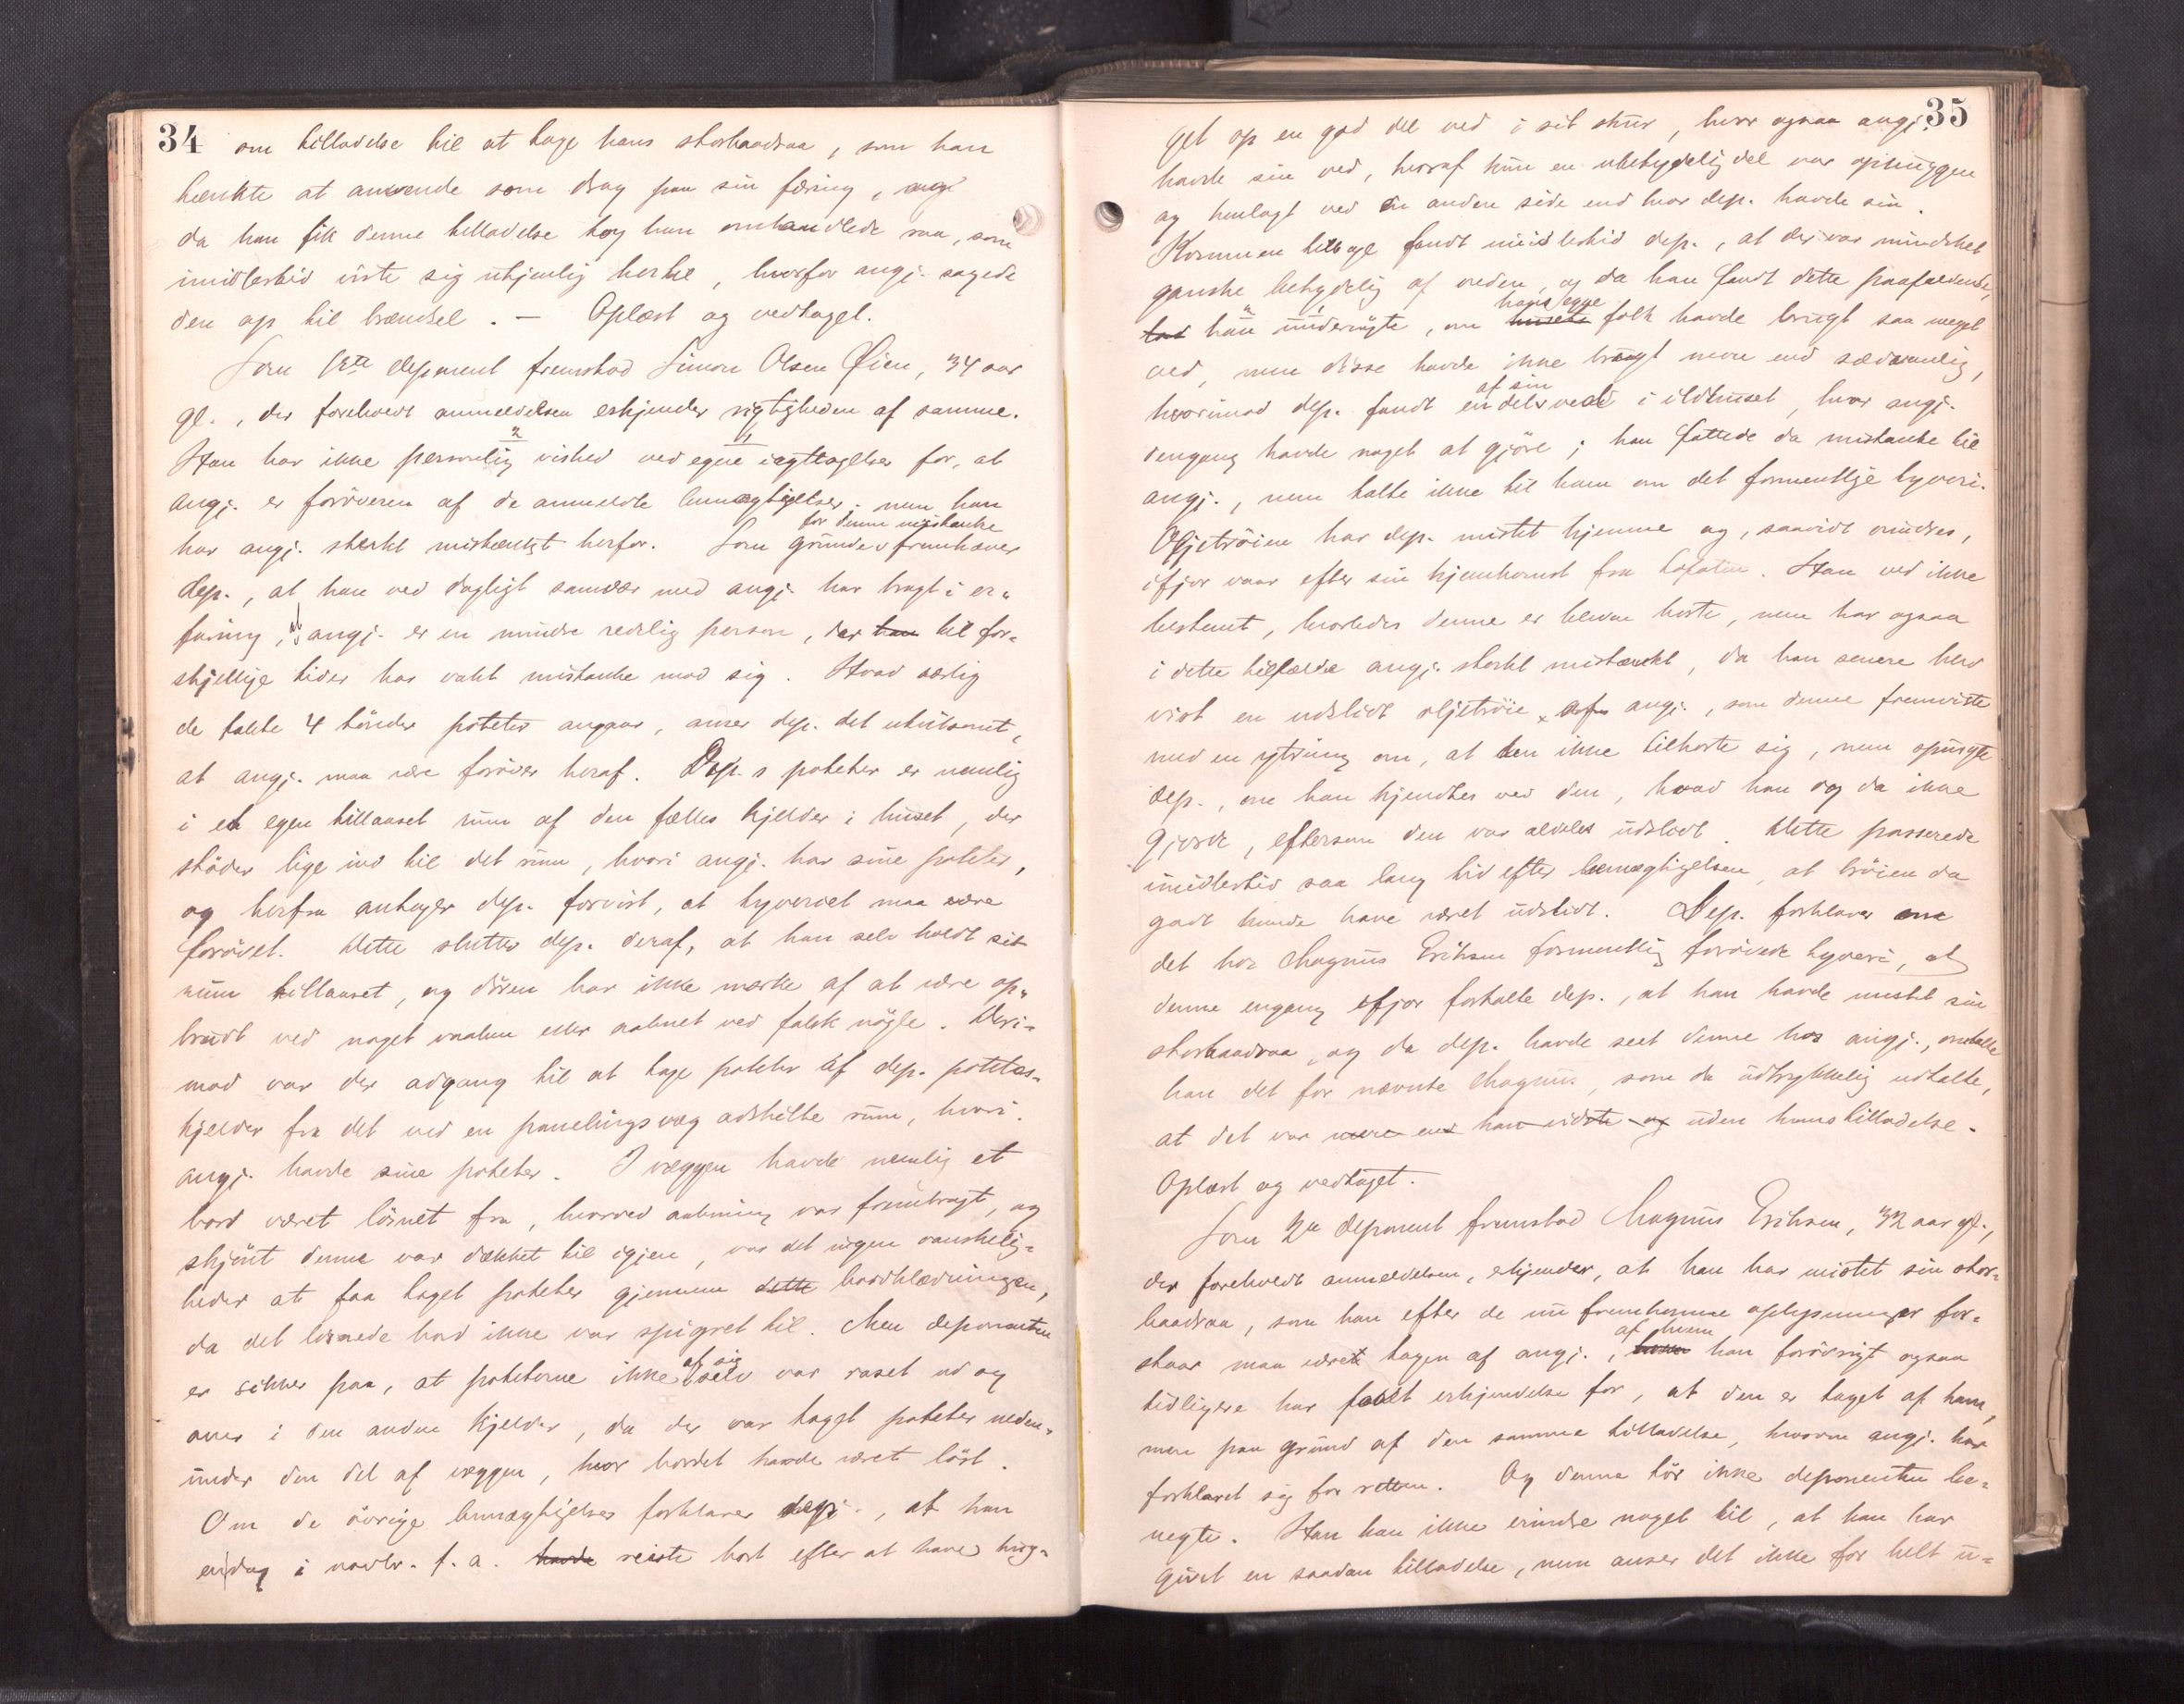 34
om tilladelse til at tage hans storbaadraa, som han
tænkte at anvende som drag paa sin færing, og
da han fik denne tilladelse tog han omhandlede raa, som
imidlertid viste sig utjenlig hertil, hvorfor angj. sagede
den op til brændsel. — Oplæst og vedtaget.
Som 1ste deponent fremstod Simon Olsen Øien, 34 aar
gl., der foreholdt anmeldelsen erkjender rigtigheden af samme.
Han har ikke personlig vished ved egne iagttagelser for, at
angj. er forøveren af de anmeldte bemægtigelser, men han
har angj. stærkt mistænkt herfor. Som grunde for denne mistanke fremhæver
dep., at han ved dagligt samvær med angj. har bragt i er-
faring, at angj. er en mindre redelig person, der han til for-
skjellige tider har vakt mistanke mod sig. Hvad særlig
de stjaalne 4 tønder poteter angaar, anser dep. det utvilsomt,
at angj. maa være forøver heraf. Dep.s poteter er nemlig
i et egen tillaaset rum af den fælles kjelder i huset, der
støder lige ind til det rum, hvori angj. har sine poteter,
og herfra antager dep. forvist, at tyveriet maa være
forøvet. Dette slutter dep. deraf, at han selv holdt sit
rum tillaaset, og døren har ikke mærke af at være op-
brudt ved noget vaaben eller aabnet ved falsk nøgle. Deri-
mod var der adgang til at tage poteter af dep. potetes-
kjelder fra det ved en panelingsvæg adskilte rum, hvori
angj. havde sine poteter. I væggen havde nemlig et
bord været løsnet fra, hvorved aabning var frembragt, og
skjønt denne var dækket til igjen, var det ingen vanskelig-
heder at faa taget poteter gjennem dette bordklædningen,
da det løsnede bord ikke var spigret til. Men deponenten
er sikker paa, at poteterne ikke af sig selv var raset ud og
over i den anden kjelder, da der var taget poteter neden-
under den del af væggen, hvor bordet havde været løst.
Om de øvrige bemægtigelser forklarer dep., at han
en dag i novbr. f. a. havde reiste bort efter at have hug-
35
get op en god del ved i sit skur, hvor ogsaa angj.
havde sin ved, hvoraf kun en ubetydelig del var ophuggen
og henlagt ved en anden side end hvor dep. havde sin.
Kommen tilbage fandt imidlertid dep., at der var mindsket
ganske betydelig af veden, og da han fandt dette paafaldende,
lod han undersøgte, om husets hans egne folk havde brugt saa meget
ved, men disse havde ikke brugt mere end sædvanlig,
hvorimod dep. fandt en del af sin ved i ildhuset, hvor angj.
dengang havde noget at gjøre; han fattede da mistanke til
angj., men talte ikke til ham om det formentlige tyveri.
Oljetrøien har dep. mistet hjemme og, saavidt erindres,
ifjor vaar efter sin hjemkomst fra Lofoten. Han ved ikke
bestemt, hvorledes denne er bleven borte, men har ogsaa
i dette tilfælde angj. stærkt mistænkt, da han senere blev
vist en udslidt oljetrøie af angj., som denne fremviste
med en ytring om, at den ikke tilhørte sig, men spurgte
dep., om han kjendtes ved den, hvad han og da ikke
gjorde, eftersom den var aldeles udslidt. Dette passerede
imidlertid saa lang tid efter bemægtigelsen, at trøien da
godt kunde have været udslidt. Dep. forklarer om
det hos Magnus Eriksen formentlig forøvede tyveri, at
denne engang ifjor fortalte dep., at han havde mistet sin
storbaadraa, og da dep. havde seet denne hos angj., omtalte
han det for nævnte Magnus, som da udtrykkelig udtalte,
at det var mere end han vidste og uden hans tilladelse.
Oplæst og vedtaget.
Som 2den deponent fremstod Magnus Eriksen, 32 aar gl.,
der foreholdt anmeldelsen, erkjender, at han har mistet sin stor-
baadraa, som han efter de nu fremkomne oplysninger for-
staar maa været tagen af angj., hvem af hvem han forøvrigt ogsaa
tidligere har faaet erkjendelse for, at den er taget af ham,
men paa grund af den samme tilladelse, hvorom angj. har
forklaret sig for retten. Og denne tør ikke deponenten be-
negte. Han kan ikke erindre noget til, at han har
givet en saadan tilladelse, men anser det ikke for helt u-